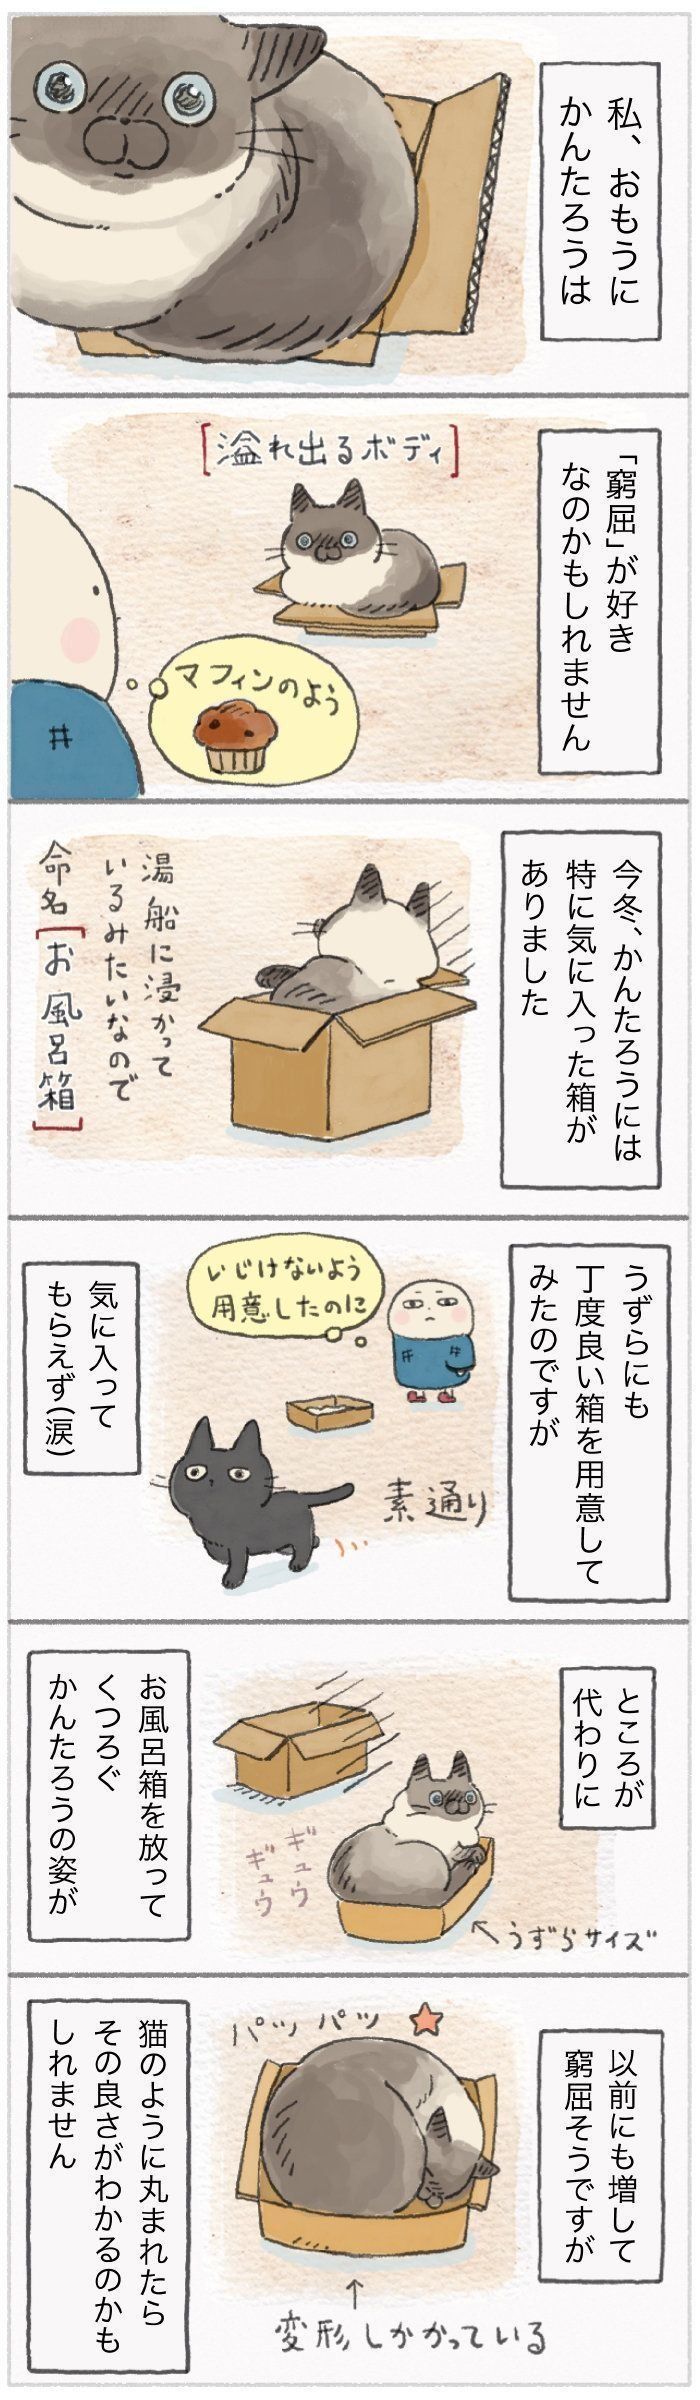 私、おもうに
かんたろうは
「窮屈」が好き
なのかもしれません
[溢れ出るボディ]
マフィンのよう
今冬、かんたろうには
特に気に入った箱が
ありました
湯船に浸かって
いるみたいなので
命名[お風呂箱]
うずらにも
丁度良い箱を用意して
みたのですが
いじけないよう
用意したのに
素通り
気に入って
もらえず(涙)
ところが
代わりに
ギュウ
ギュウ
うずらサイズ
お風呂箱を放って
くつろぐ
かんたろうの姿が
以前にも増して
窮屈そうですが
パツパツ
変形しかかっている
猫のように丸まれたら
その良さがわかるのかも
しれません